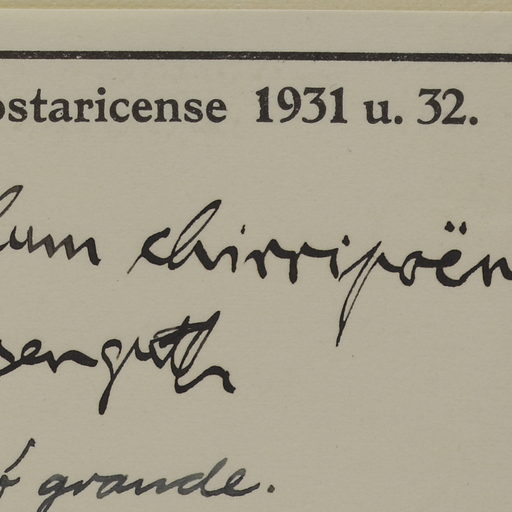 ostaricense 1931 u. 32.
lum chirripoën
senguth
ó grande.